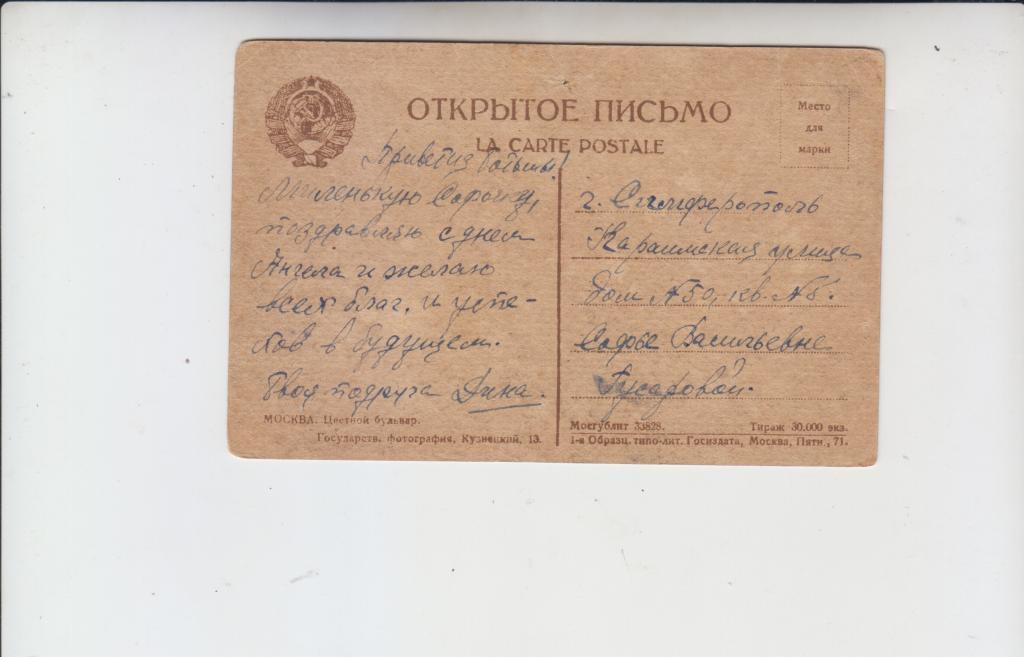 ОТКРЫТОЕ ПИСЬМО
LA CARTE POSTALE
Место
для
марки
Привет из !
Миленькую Софочку,
поздравляю с днем
Ангела и желаю
всех благ. и успе-
хов в будущем.
Твоя подруга Дина.
МОСКВА. Цветной бульвар.
Государств. фотография, Кузнецкий, 13.
г. Симферополь
Караимская улица
дом №50, кв. №5.
Софье Васильевне
Гусаровой.
Мосгублит 33828. Тираж 30.000 экз.
1-я Образц. типо-лит. Госиздата, Москва, Пятн., 71.